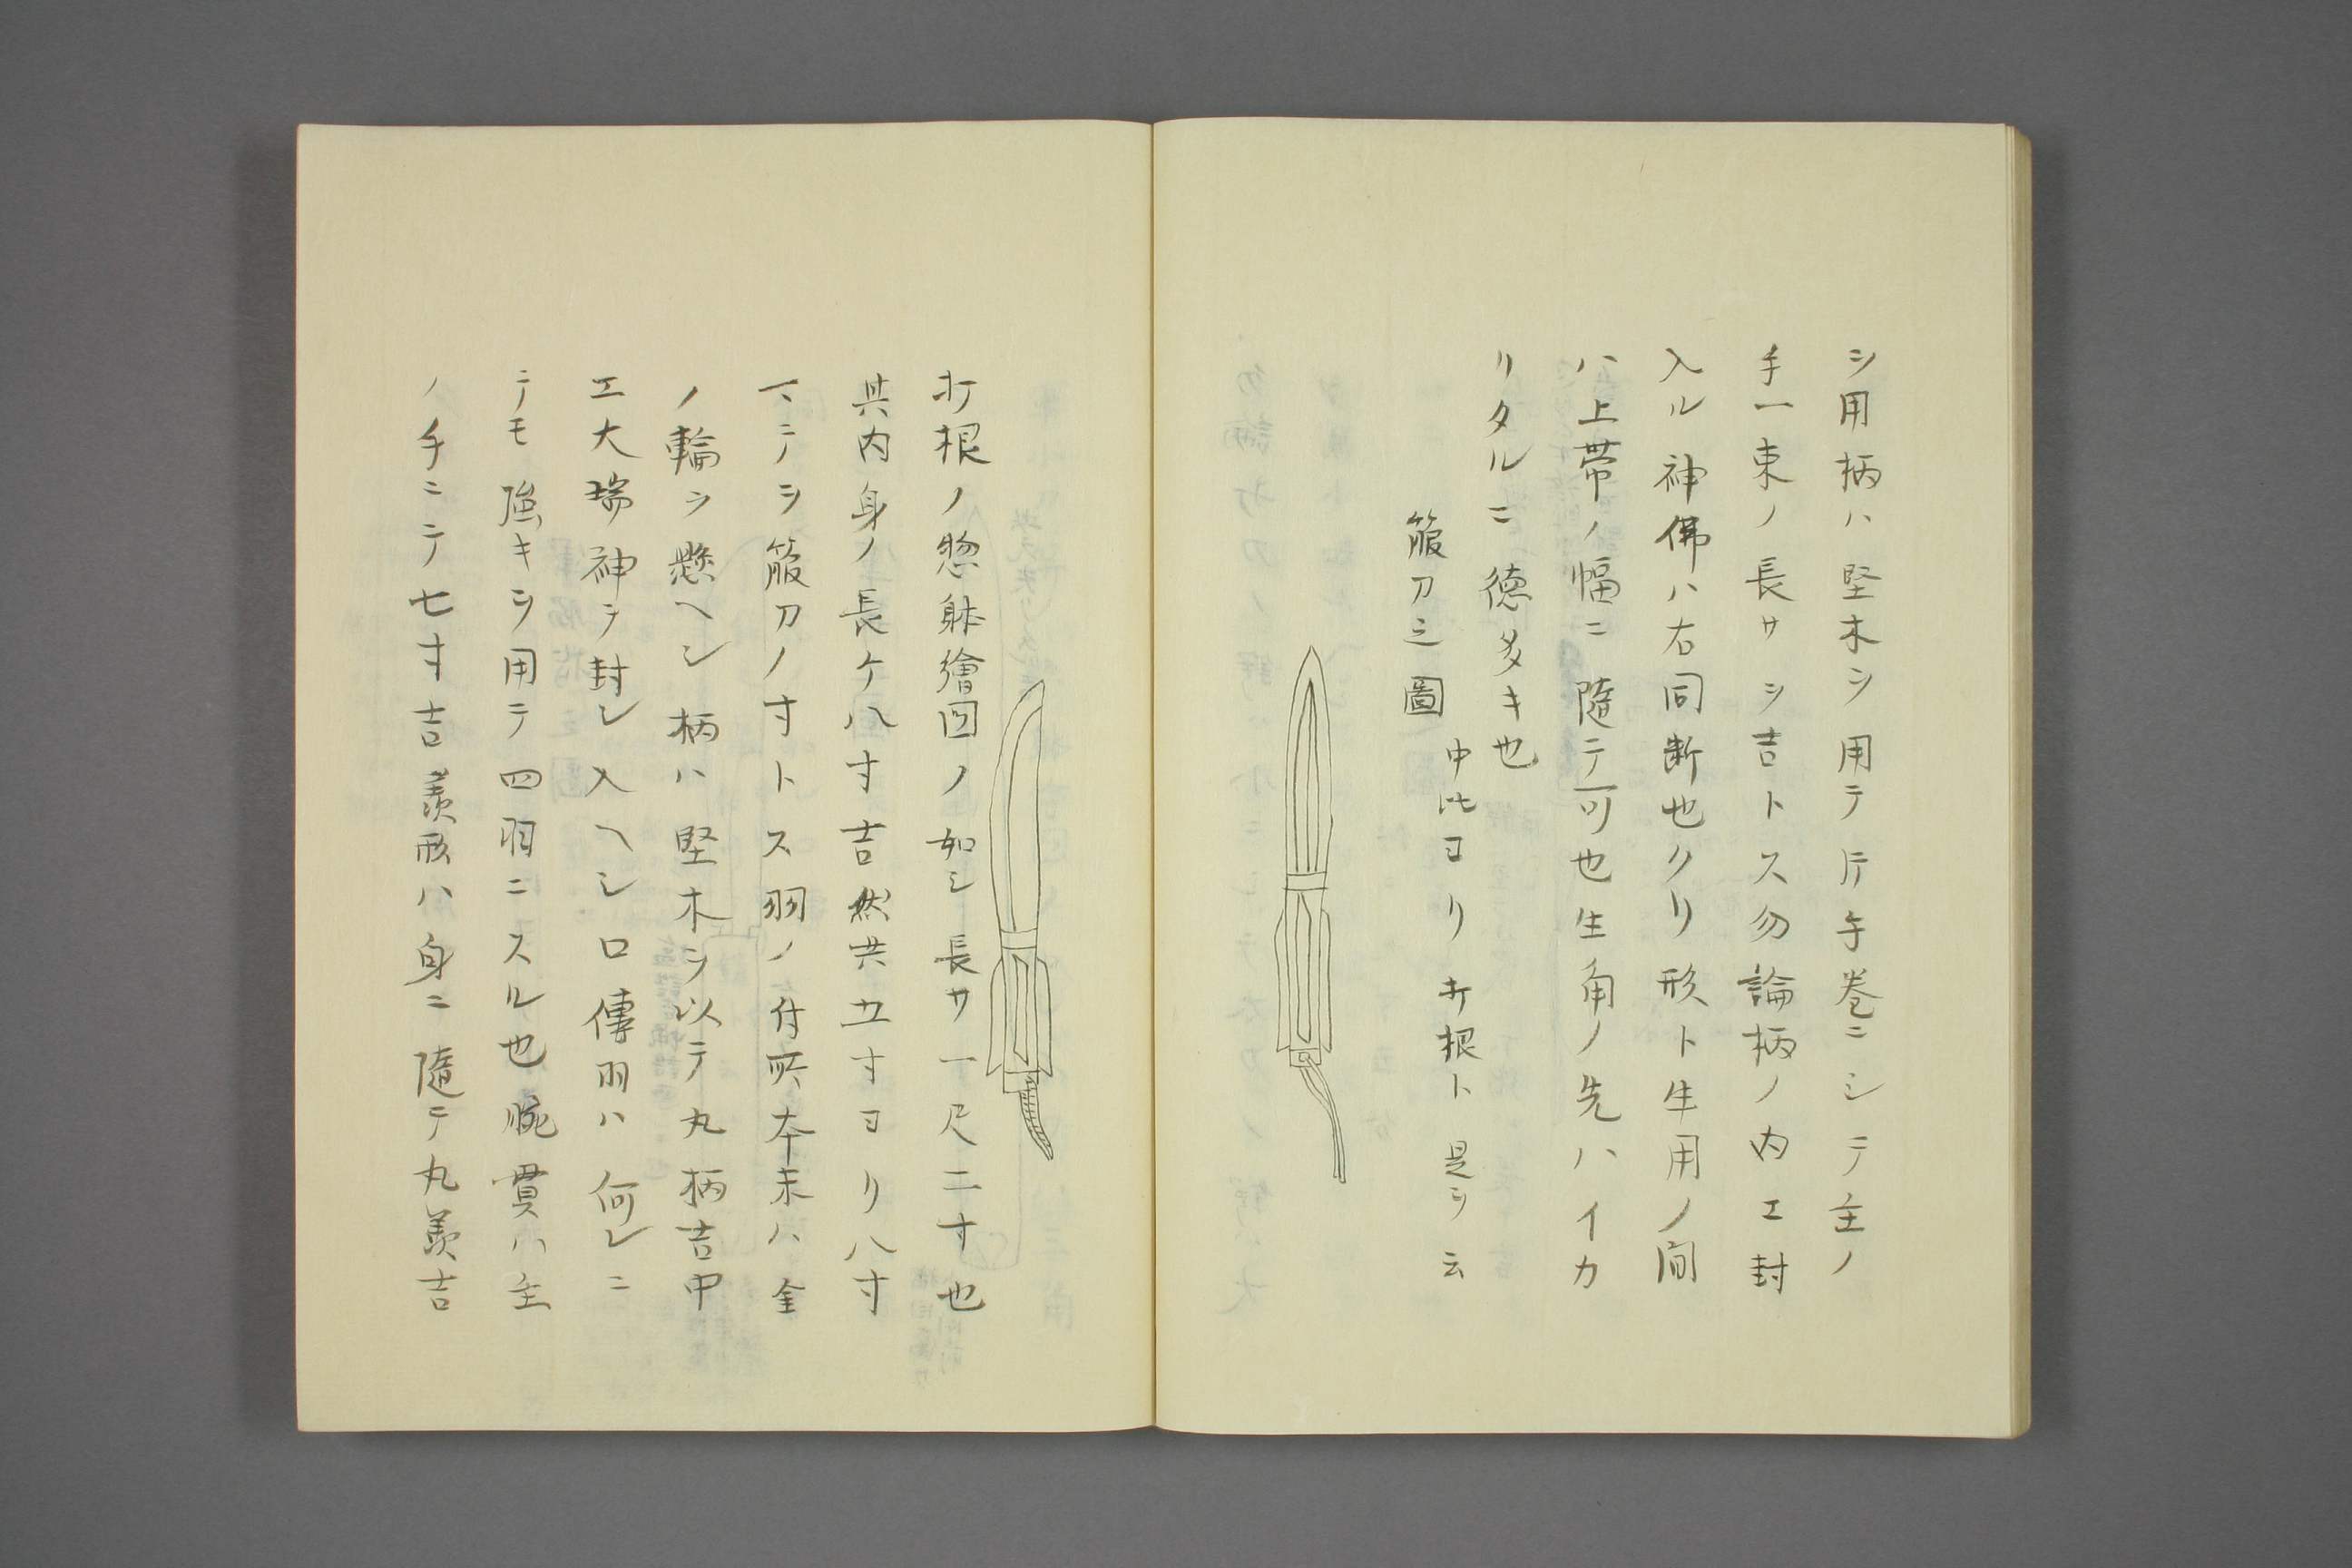 シ用柄ハ堅木ヲ用テ片手巻ニシテ主ノ
手一束ノ長サヲ吉トス勿論柄ノ内エ封
入ル神佛ハ右同断也クリ形ト生用ノ間
ハ上帯ノ幅ニ隨テ可也生角ノ先ハイカ
リタルニ徳多キ也
箙刀之圖
中比ヨリ打根ト是ヲ云
打根ノ惣躰繪図ノ如シ長サ一尺二寸也
共内身ノ長ケ八寸吉然共五寸ヨリ八寸
マテヲ箙刀ノ寸トス羽ノ付所本末ハ金
ノ輪ヲ懸ヘシ柄ハ堅木ヲ以テ丸柄吉中
エ大瑞神ヲ封シ入ヘシ口傳羽ハ何レニ
テモ強キヲ用テ四羽ニスル也腕貫ハ主
ノ手ニテ七寸吉羨形ハ身ニ隨テ丸羨吉